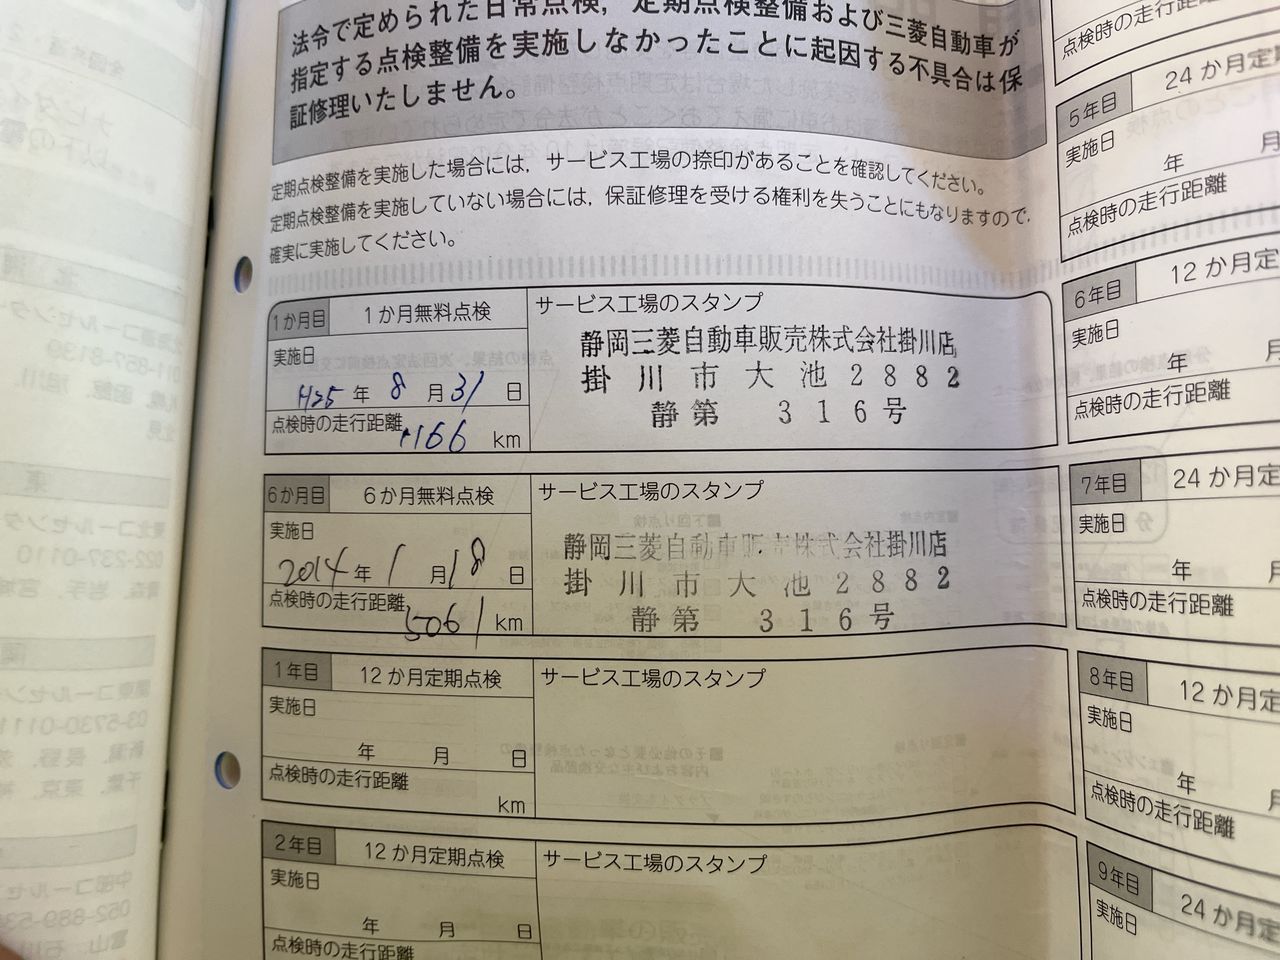 法令で定められた日常点検，定期点検整備および三菱自動車が
指定する点検整備を実施しなかったことに起因する不具合は保
証修理いたしません。
定期点検整備を実施した場合には，サービス工場の捺印があることを確認してください。
定期点検整備を実施していない場合には，保証修理を受ける権利を失うことにもなりますので，
確実に実施してください。
1か月目 1か月無料点検
実施日
H25年 8月31日
点検時の走行距離
km
サービス工場のスタンプ
静岡三菱自動車販売株式会社掛川店
掛川市大池2882
静第 316号
6か月目 6か月無料点検
実施日
2014年 1月18日
点検時の走行距離
5061 km
サービス工場のスタンプ
静岡三菱自動車販売株式会社掛川店
掛川市大池2882
静第 316号
1年目 12か月定期点検
実施日
年 月 日
点検時の走行距離
km
サービス工場のスタンプ
2年目 12か月定期点検
実施日
年 月 日
点検時の走行距離
サービス工場のスタンプ
点検時の走行距離
5年目 24か月定期
実施日
年 月
点検時の走行距離
6年目 12か月定
実施日
年 月
点検時の走行距離
7年目 24か月定
実施日
年 月
点検時の走行距離
8年目 12か月定
実施日
年 月
点検時の走行距離
9年目 24か月定
実施日